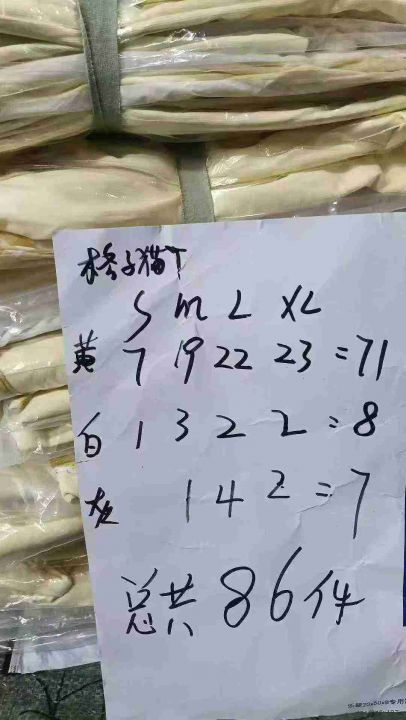 格子猫T
S M L XL
黄 7 19 22 23 =71
白 1 3 2 2 = 8
灰 1 4 2 = 7
总共 86件